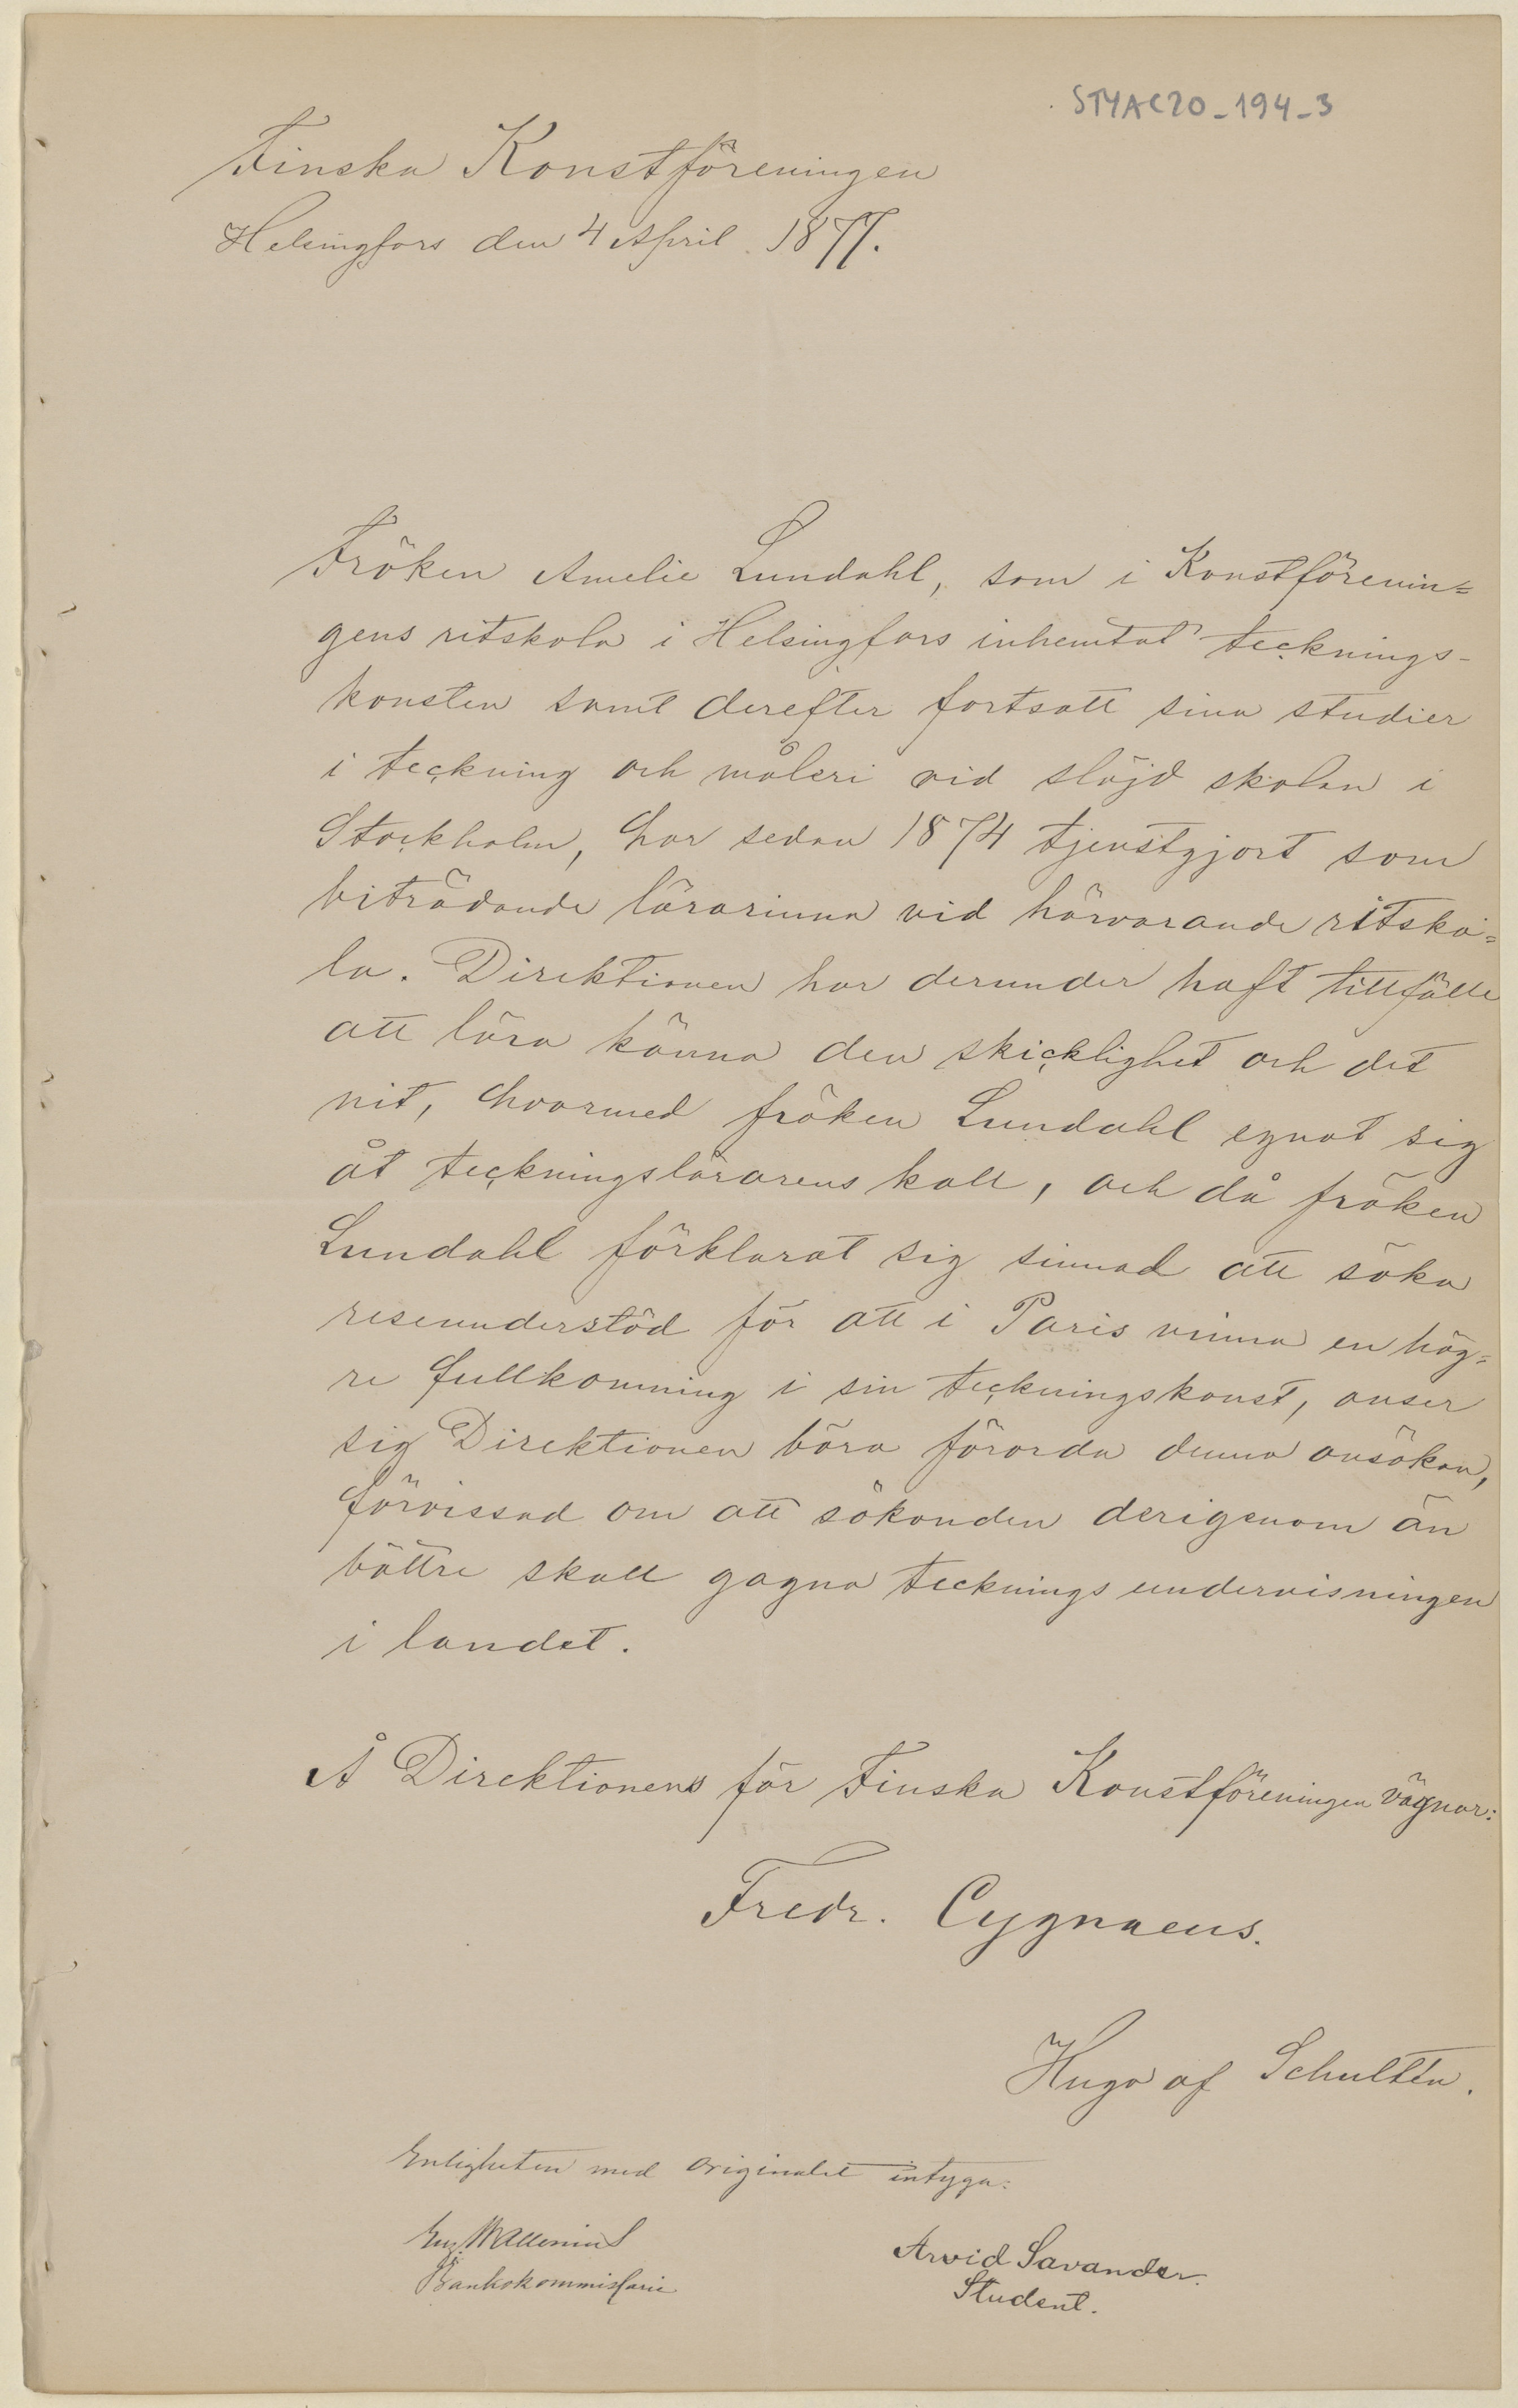 STYAC20_194_3
Finska Konstföreningen
Helsingfors den 4 April 1877.
Fröken Amelie Lundahl, som i Konstförenin=
gens ritskola i Helsingfors inhemtat tecknings-
konsten samt derefter fortsatt sina studier
i teckning och måleri vid slöjd skolan i
Stockholm, har sedan 1874 tjenstgjort som
biträdande lärarinna vid härvarande ritsko=
la. Direktionen har derunder haft tillfälle
att lära känna den skicklighet och det
nit, hvarmed fröken Lundahl egnat sig
åt teckningslärarens kall, och då fröken
Lundahl förklarat sig sinnad att söka
reseunderstöd för att i Paris vinna en hög=
re fullkomning i sin teckningskonst, anser
sig Direktionen böra förorda denna ansökan,
förvissad om att sökanden derigenom än
bättre skall gagna tecknings undervisningen
i landet.
Å Direktionens för Finska Konstföreningen vägnar:
Fredr. Cygnaeus.
Hugo af Schultén.
Enligheten med originalet intyga:
Wallenius
Arvid Savander.
Bankokommissarie
Student.